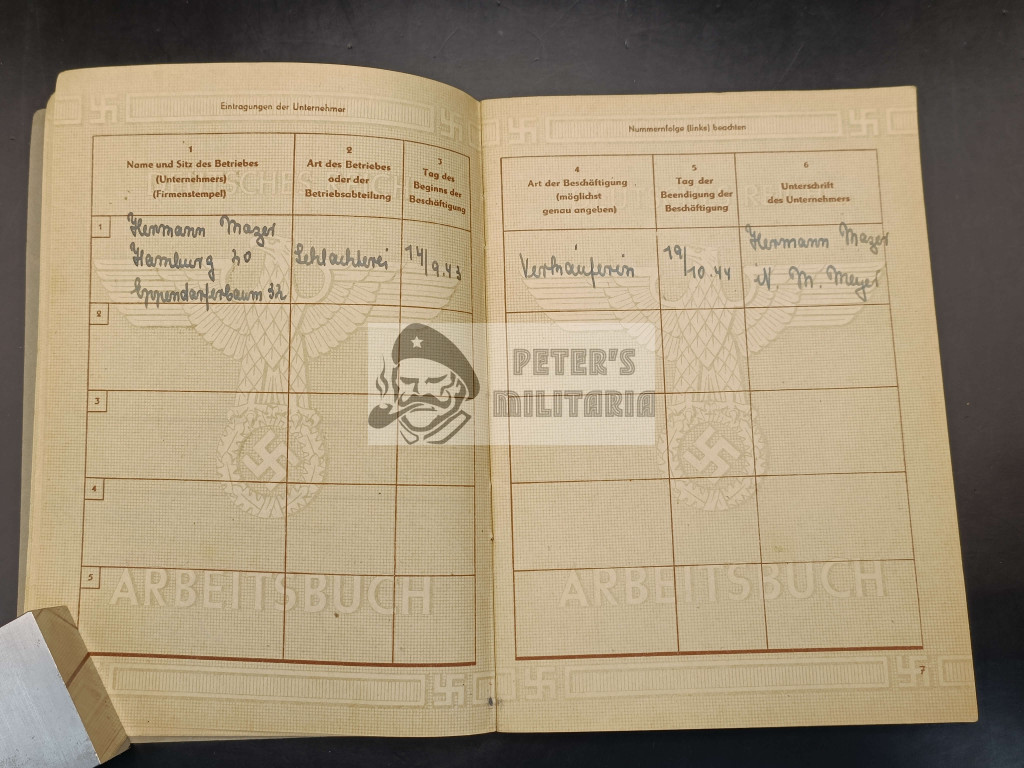 Eintragungen der Unternehmer
1
Name und Sitz des Betriebes
(Unternehmers)
(Firmenstempel)
2
Art des Betriebes
oder der
Betriebsabteilung
3
Tag des
Beginns der
Beschäftigung
1
Hermann Mazer
Hamburg 20
Eppendorferbaum 32
Schlachterei
14/9.43
2
3
4
5
ARBEITSBUCH
Nummernfolge (links) beachten
4
Art der Beschäftigung
(möglichst
genau angeben)
5
Tag der
Beendigung der
Beschäftigung
6
Unterschrift
des Unternehmers
Verkäuferin
19/10.44
Hermann Mazer
M. Meyer
ARBEITSBUCH
7
PETER'S
MILITARIA